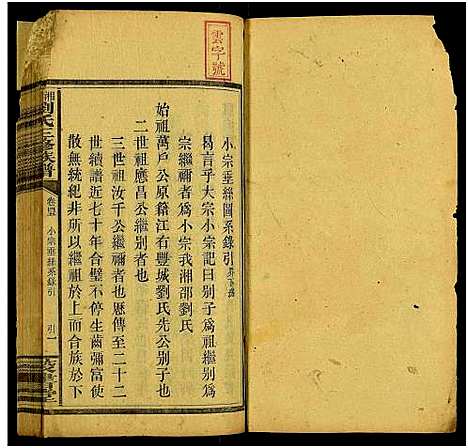 雲字號
小宗垂絲圖系錄引
曷言乎大宗小宗記曰别子爲祖繼别爲
宗繼禰者爲小宗我湘邵劉氏
始祖萬戶公原籍江右豐城劉氏先公别子也
二世祖應昌公繼别者也
三世祖汝千公繼禰者也歷傳至二十二
世續譜近七十年合璧不停生齒彌富使
散無統紀非所以繼祖於上而合族於下
湘劉氏三修族譜
小宗垂絲系錄引
引一